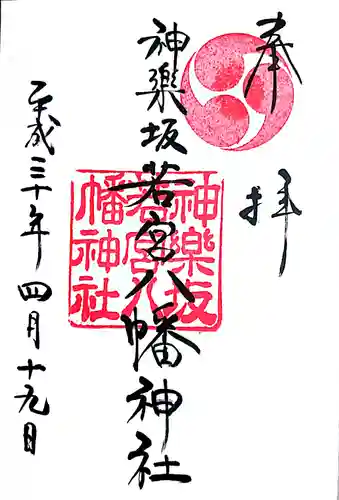 奉拝
神樂坂若宮八幡神社
神樂坂若宮八幡神社
平成三十年四月十九日